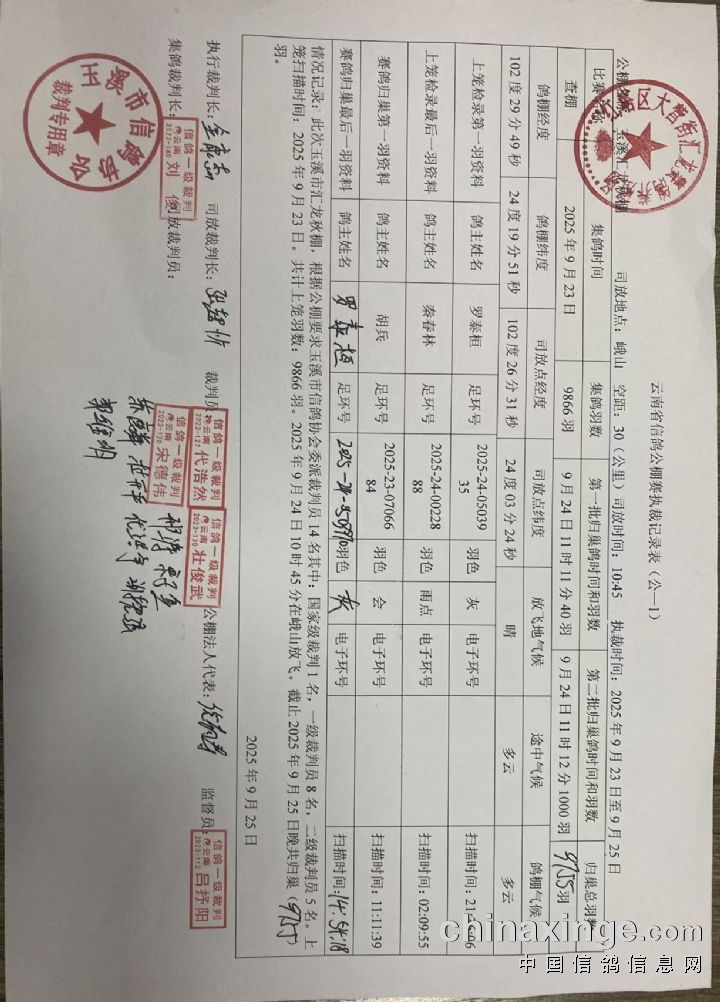 云南省信鸽公棚赛执裁记录表（公—1）
公棚名称：玉溪汇龙秋棚 司放地点：峨山 空距：30（公里）司放时间：10:45 执裁时间：2025年9月23日至9月25日
比赛名称 集鸽时间 集鸽羽数 第一批归巢鸽时间和羽数 第二批归巢鸽时间和羽数 归巢总羽数
查棚 2025年9月23日 9866羽 9月24日11时11分40羽 9月24日11时12分1000羽 9755羽
鸽棚经度 鸽棚纬度 司放点经度 司放点纬度 放飞地气候 途中气候 鸽棚气候
102度29分49秒 24度19分51秒 102度26分31秒 24度03分24秒 晴 多云 多云
上笼检录第一羽资料 鸽主姓名 罗泰桓 足环号 2025-24-0503935 羽色 灰 电子环号 扫描时间：21:15:06
上笼检录最后一羽资料 鸽主姓名 秦春林 足环号 2025-24-0022888 羽色 雨点 电子环号 扫描时间：02:09:55
赛鸽归巢第一羽资料 鸽主姓名 胡兵 足环号 2025-23-0706684 羽色 会 电子环号 扫描时间：11:11:39
赛鸽归巢最后一羽资料 鸽主姓名 罗泰桓 足环号 羽色 灰 电子环号 扫描时间：14:54:18
情况记录：此次玉溪市汇龙秋棚，根据公棚要求玉溪市信鸽协会委派裁判员14名其中：国家级裁判1名，一级裁判员8名，二级裁判员5名。上
笼扫描时间：2025年9月23日。共计上笼羽数：9866羽。2025年9月24日10时45分在峨山放飞。截止2025年9月25日晚共归巢（9755）
羽。
2025年9月25日
执行裁判长： 司放裁判长： 裁判员 公棚法人代表： 监督员：
集鸽裁判长： 司放裁判员：
信鸽一级裁判
云南 刘俊
2023-140
信鸽一级裁判
云南 代浩然
2023-127
信鸽一级裁判
云南 宋德伟
2023-120
信鸽一级裁判
云南 壮俊武
2023-130
信鸽一级裁判
云南 吕抒阳
2023-112
裁判专用章
chinaxinge.com
中国信鸽信息网